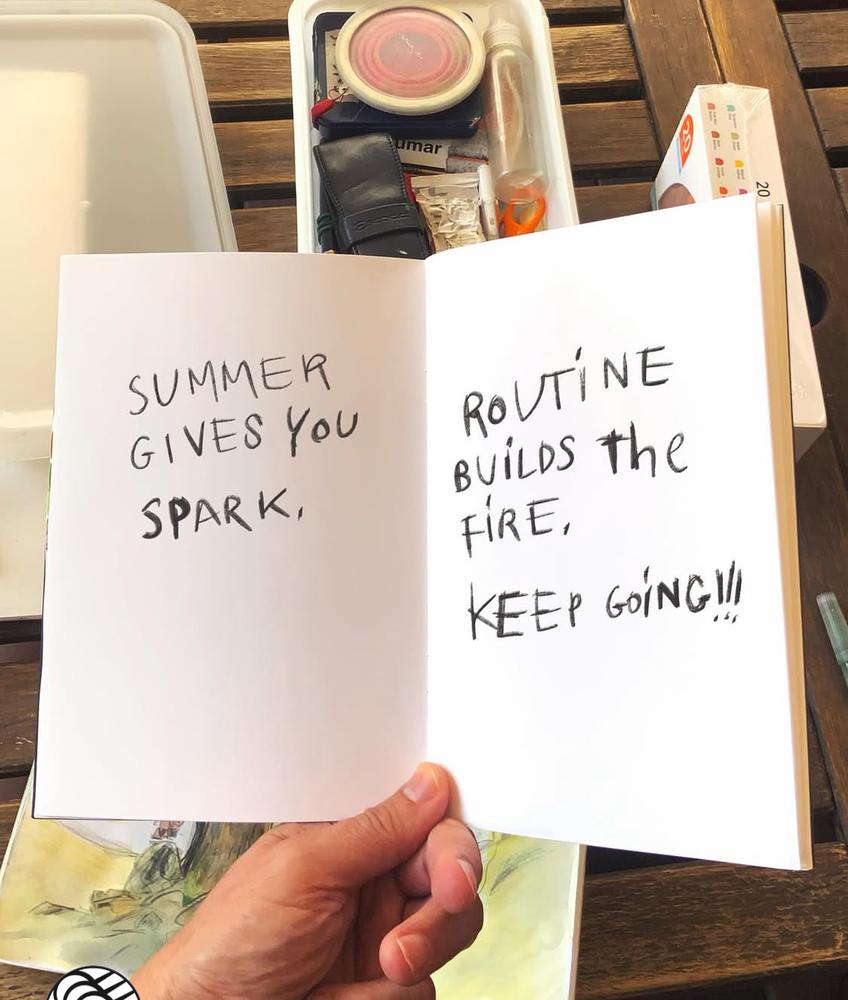 SUMMER
GIVES YOU
SPARK.
ROUTiNE
BUiLDS the
FiRE.
KEEP GOiNG!!!
umar
20
20